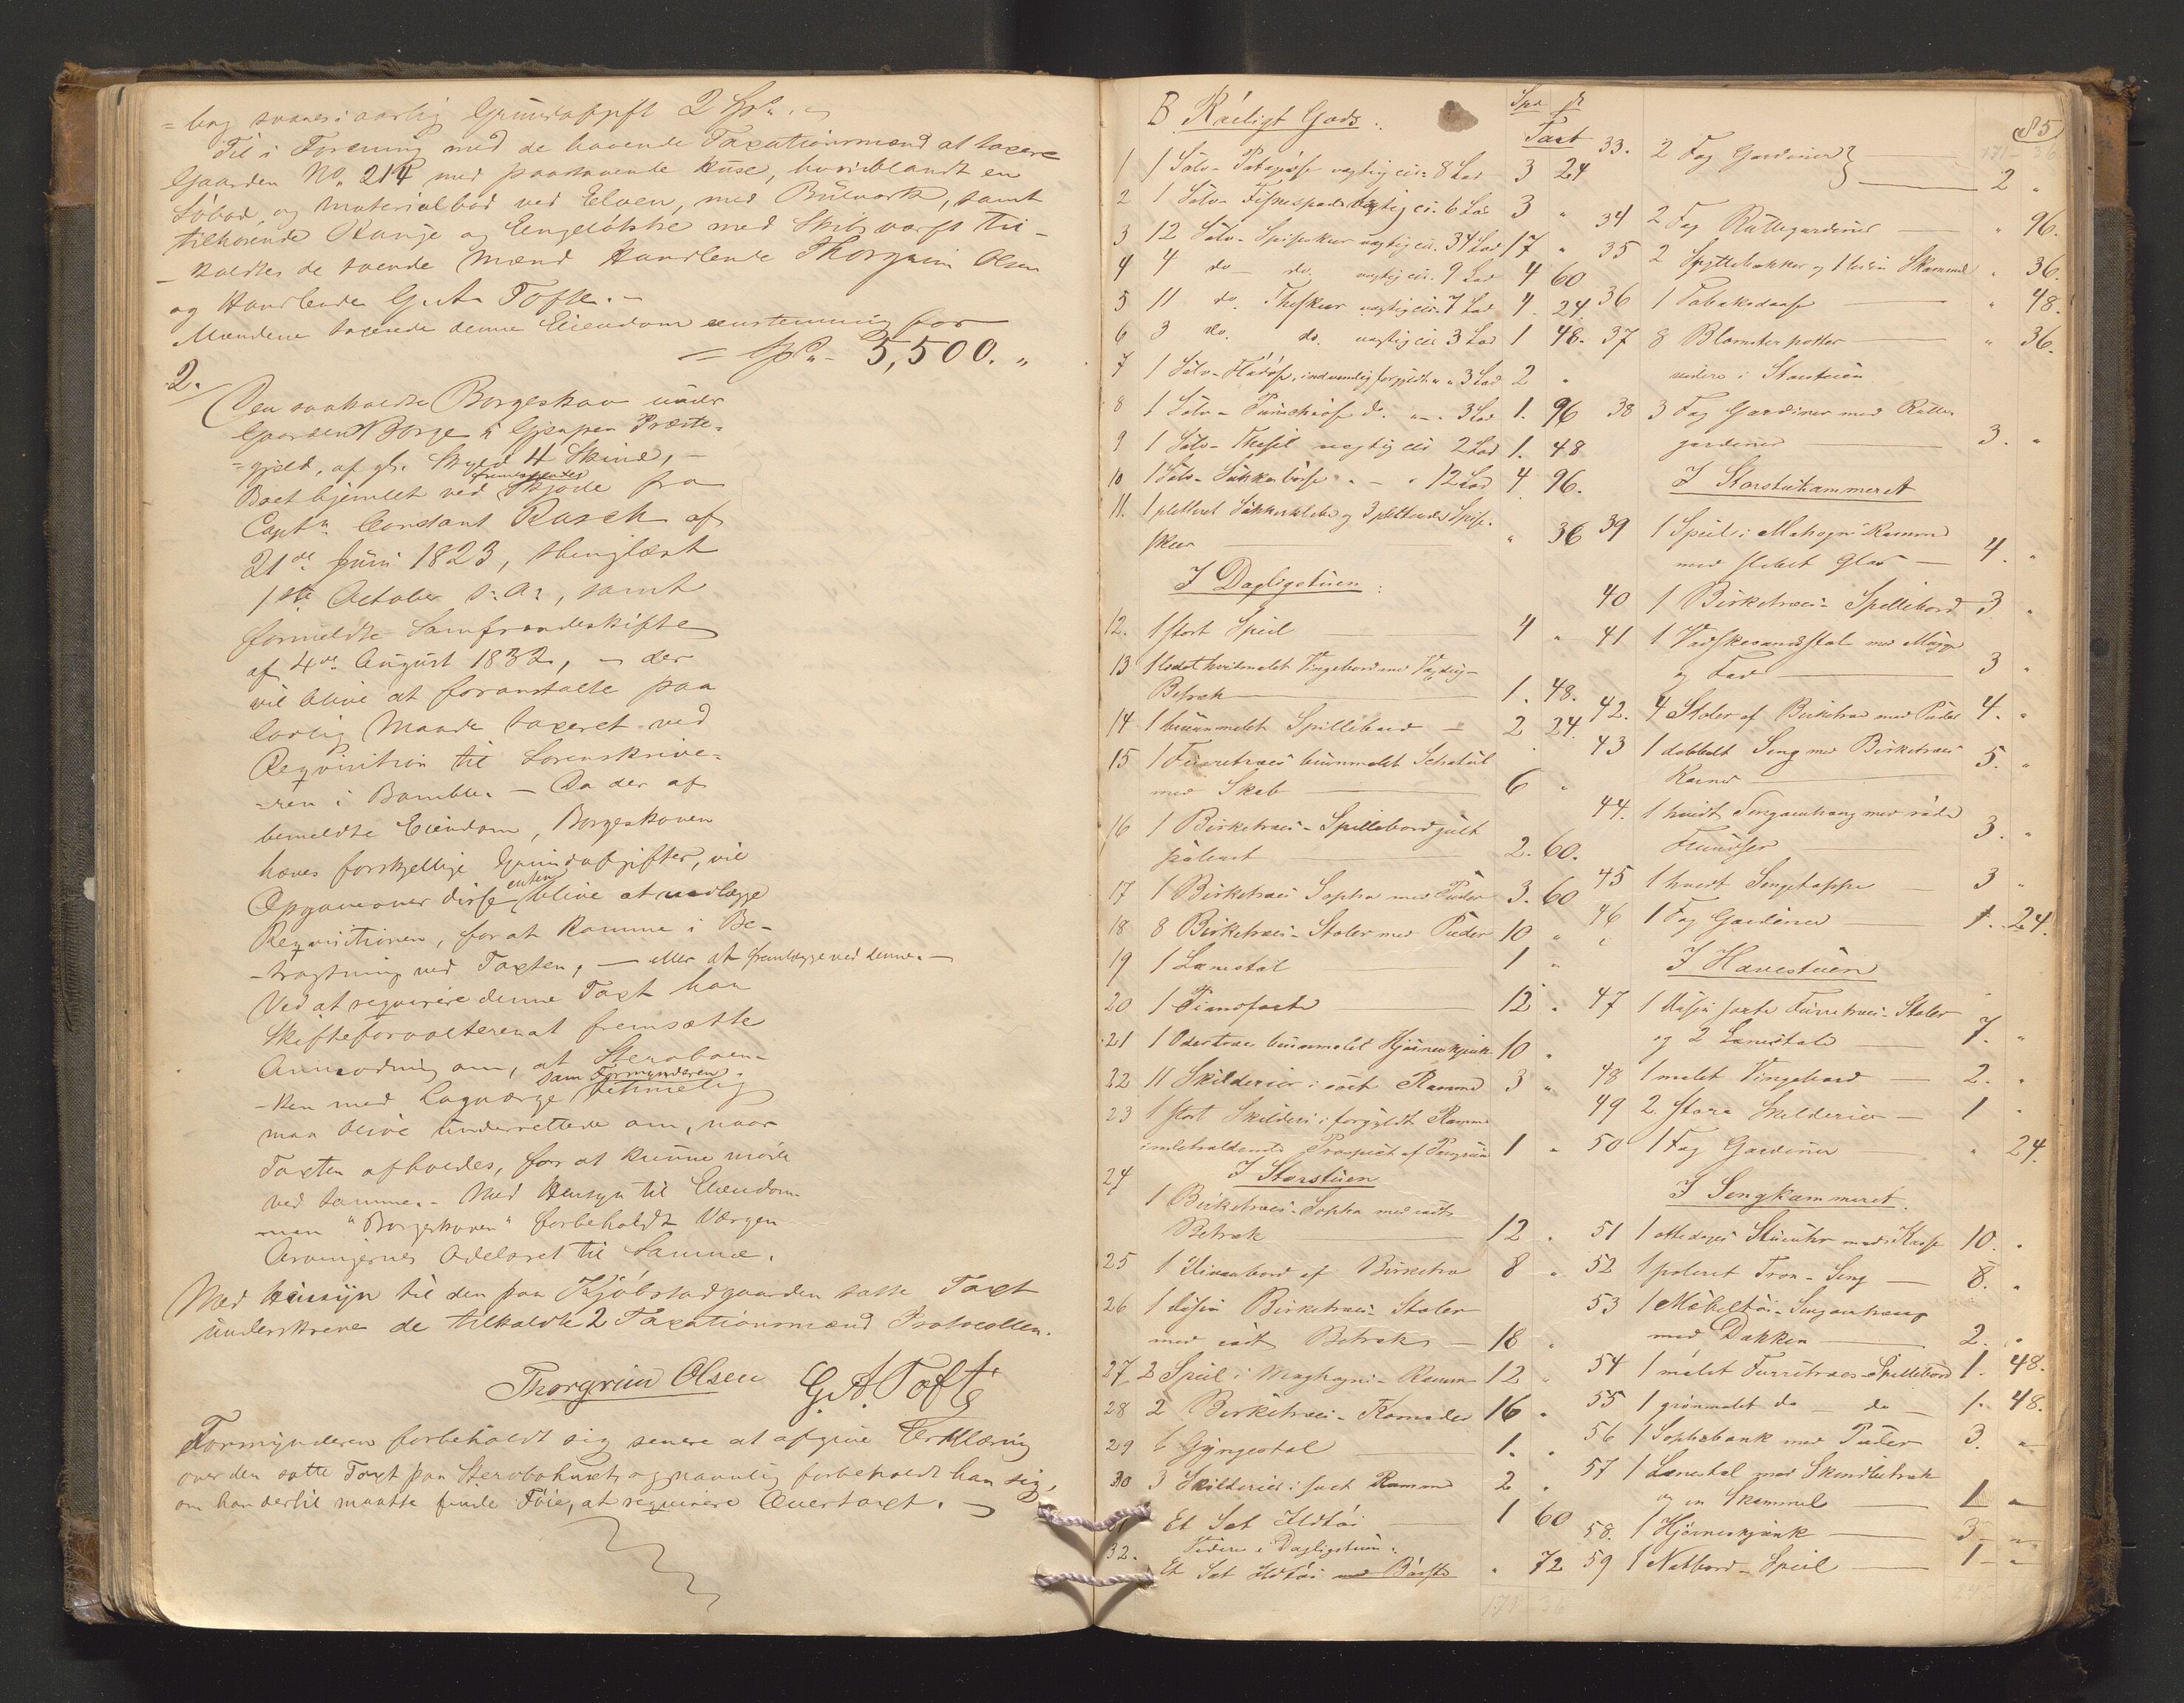 = bag svares i aarlig Grundafgift 2 Spd. -
Til i Forening med de havende Taxationsmænd at taxere
Gaarden No. 214 med paastaaende Huse, hvoriblandt en
Søbod, og Materialbod ved Elven, med Bulværk, samt
tilhørende Hauge og Engeløkke med Skibsværft til-
- kaldtes de tvende Mænd Handlende Thorgrim Olsen
og Handlende G. A. Tofte. -
Mændene taxerede denne Eiendom eenstemmig for
= Spd. - 5,500. "
2.
Den saakaldte Borgeskov under
Gaarden Borge i Gjerpen Præste-
= gjeld, af gl. Skyld 4 Skind, -
Boet hjemlet ved fremlagendes Skjøde fra
Captn. Constant Rasch af
21de Juni 1823, thinglæst
1ste October s. a., samt
formeldte Samfrændeskifte
af 4de August 1832, - der
vil blive at foranstalte paa
lovlig Maade taxeret ved
Reqvisition til Sorenskrive-
= ren i Bamble. - Da der af
bemeldte Eiendom, Borgeskoven
haves forskjellige Grundafgifter, vil
Opgave over disse enten blive at vedlægge
Reqvisitionen, for at komme i Be-
- tragtning ved Taxten, - eller at fremlægge ved denne. -
Ved at reqvirere denne Taxt har
Skifteforvalteren at fremsætte
Anmodning om, at Sterboen-
- ken med Laugværge sam Formynderen betimelig
maa blive underrettede om, naar
Taxten afholdes, for at kunne møde
ved samme. - Med Hensyn til Eiendom-
men "Borgeskoven" forbeholdt Værgen
Arvingernes Odelsret til Samme.
Med Hensyn til den paa Kjøbstadgaarden satte Taxt
underskrev de tilkaldte 2 Taxationsmænd Protocollen.
Thorgrim Olsen G. A. Tofte
Formynderen forbeholdt sig senere at afgive Erklæring
over den satte Taxt paa Sterbohuset og navnlig forbeholdt han sig,
om han dertil maatte finde Føie, at reqvirere Overtaxt. -
B. Rørligt Gods.
Spd ß
Taxt
1 1 Sølv-Potageøse vægtig cir. 8 Lod 3 24
2 1 Sølv-Fiskespade vægtig cir. 6 Lod 3 "
3 12 Sølv-Spiseskeer vægtig cir. 34 Lod 17 "
4 4 do - do. vægtig cir. 9 Lod 4 60
5 11 do. Theskeer vægtig cir. 7 Lod 4. 24.
6 3 do. do. vægtig cir 3 Lod 1 48.
7 1 Sølv-Flødøse, indvendig forgyldt " " 3 Lod 2 "
8 1 Sølv-Punschøse do. " - . 3 Lod 1. 96
9 1 Sølv-Thesil vægtig cir 2 Lod 1. 48
10 1 Sølv-Sukkerbøsse " - " 12 Lod 4 96.
11. 1 pletteret Sukkerklebe og 3 pletterede Spise-
skeer " 36
I Dagligstuen:
12. 1 stort Speil 4 "
13 1 lidet hvidmalet Vingebord med Voxdug-
Betræk 1. 48.
14 1 brunmalet Spillebord - 2 24.
15 1 Furretræes brunmalet Schatul
med Skab 6 "
16 1 Birketræes-Spillebord gult
poleert 2. 60.
17 1 Birketræes Sopha med Puder 3. 60
18 8 Birketræes-Stoler med Puder 10 "
19 1 Lænestol 1 "
20 1 Pianoforte 12 "
21 1 Oretræes brunmalet Hjørneskjænk 10 "
22 11 Skilderier i sort Ramme 3 "
23 1 stort Skilderi i forgyldt Ramme
indeholdende Prospect af Porsgrund 1 "
I Storstuen
24 1 Birketræes-Sopha med rødt
Betræk 12 "
25 1 Divanbord af Birketræ 8 "
26 1 Dusin Birketræes-Stoler
med rødt Betræk - 18 "
27 2 Speil i Maghogni-Ramme 12 "
28 2 Birketræes-Komoder 16 "
29 1 Gyngestol 1. "
30 3 Skilderier i sort Ramme 2 "
31 Et Sæt Ildtøi 1 60
Videre i Dagligstuen:
32. Et Sæt Ildtøi med Børste " 72
85
33. 2 Fag Gardiner } 2 "
34 2 Fag Rullegardiner " 96.
35 2 Spyttebakker og 1 liden Skammel " 36.
36 1 Tobaksdaase " 48.
37 8 Blomsterpotter " 36.
videre i Storstuen
38 3 Fag Gardiner med Rulle-
gardiner 3. "
I Storstukammeret
39 1 Speil i Mahogni Ramme
med slebet Glas - 4. "
40 1 Birketræes-Spillebord 3 "
41 1 Vaskevandsstol med Mugge
og Fad 3 "
42. 4 Stoler af Birketræ med Puder 4. "
43 1 dobbelt Seng med Birketræes
Karmer 5. "
44. 1 hvidt Sengeomhang med røde
Frundser 3. "
45 1 hvidt Sengetæppe 3 "
46 1 Fag Gardiner 1. 24.
I Havestuen
47 1 Dusin sorte Furretræes-Stoler
og 2 Lænestole 7. "
48 1 malet Vingebord - 2. "
49 2 store Skilderier - 1 "
50 1 Fag Gardiner " 24.
I Sengkammeret.
51 1 otte dages Stueuhr med Kasse 10. "
52 1 poleret Tron-Seng - 8. "
53 1 Møbeltøi-Sengeomhang
med Dækken 2. "
54 1 malet Furretræes-Spillebord 1. 48.
55 1 grønmalet do - do - 1. 48.
56 1 Sophabænk med Puder 3. "
57 1 Lænestol med Skindbetræk
og en Skammel 1 "
58. 1 Hjørneskjænk 3 "
59 1 Natbord-Speil 1 - "